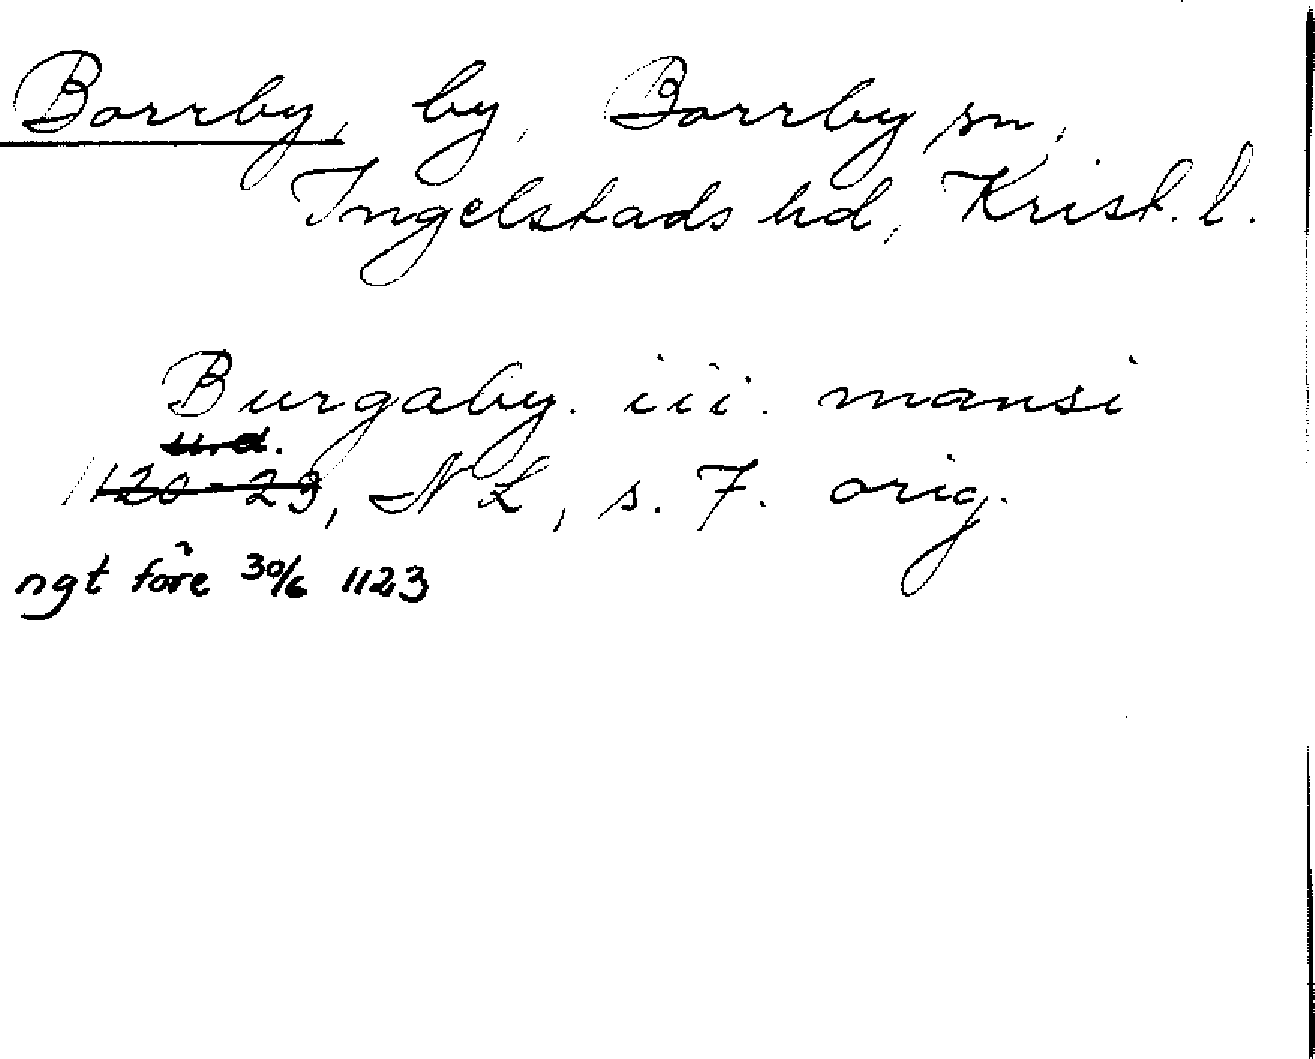 Borrby, by, Borrby sn,
Ingelstads hd, Krist. l.
Burgaby. iii. mansi
u.d.
1120-23, NL, s. 7. orig.
ngt före 30/6 1123